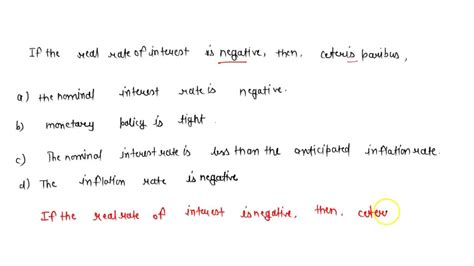 If the real rate of interest is negative, then, ceteris paribus,
a) the nominal interest rate is negative.
b) monetary policy is tight.
c) The nominal interest rate is less than the anticipated inflation rate.
d) The inflation rate is negative
If the real rate of interest is negative, then, ceter